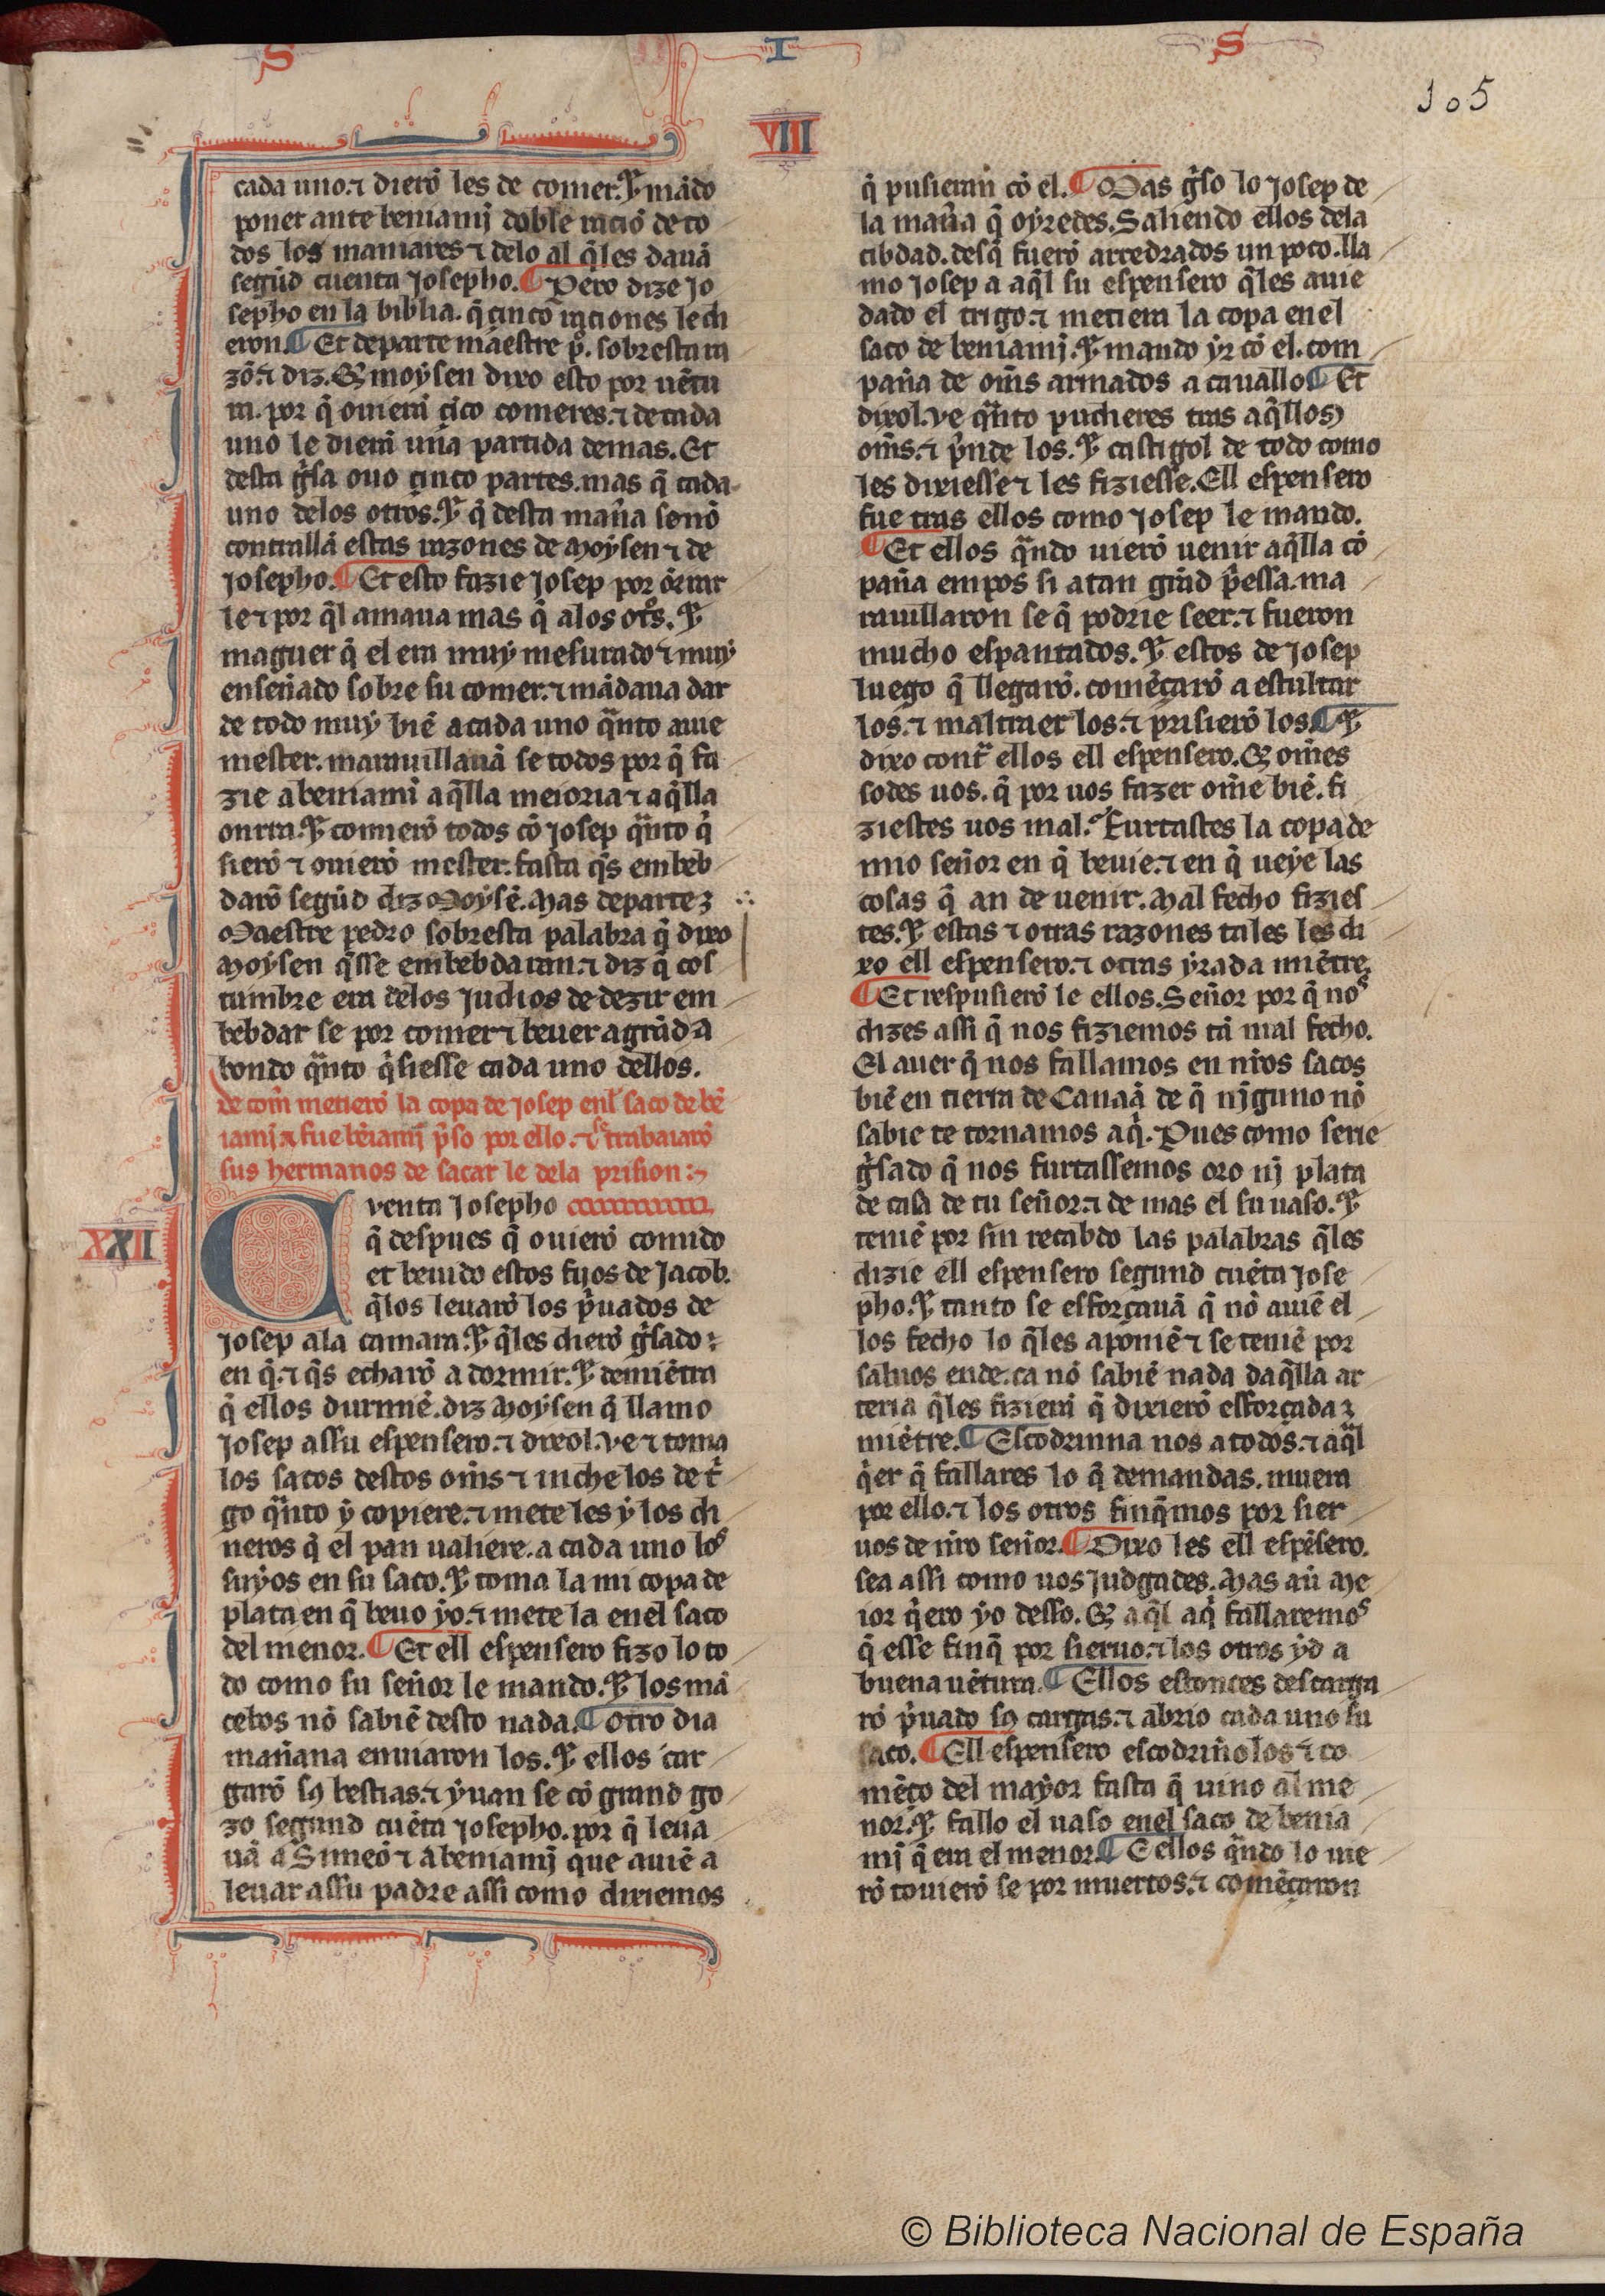 S I S
105
VIII
cada uno. ⁊ dierõ les de comer. Et mãdo
poner ante beniamj doble raciõ de to
dos los maniares ⁊ delo al q̃les dauã
segũd cuenta Josepho. ¶ Pero dize Jo
sepho en la biblia. q̃ cinco raciones le di
eron. ¶ Et departe maestre p̃. sobresta ra
zõ. ⁊ diz. Q̃ moysen dixo esto por uẽtu
ra. por q̃ ouierã çico comeres. ⁊ de cada
uno le dierã una partida demas. Et
desta g̃sa ouo cinco partes. mas q̃ cada
uno delos otros. Et q̃ desta mañ̃a senõ
contrallã estas razones de Moysen ⁊ de
Josepho. ¶ Et esto fazie Josep por õrrar
le ⁊ por q̃l amaua mas q̃ alos ot̃s. Et
maguer q̃ el era muy mesurado ⁊ muy
enseñado sobre su comer. ⁊ mãdaua dar
de todo muy biẽ a cada uno q̃nto auie
mester. marauillauã se todos por q̃ fa
zie a beniamj aq̃lla meioria ⁊ aq̃lla
onrra. Et comierõ todos cõ Josep q̃nto q̃
sierõ ⁊ ouierõ mester. fasta q̃s embeb
darõ segũd diz Moysẽ. Mas departe
Maestre pedro sobresta palabra q̃ dixo
Moysen q̃sse embebdaran. ⁊ diz q̃ cos
tumbre era delos judios de dezir em
bebdar se por comer ⁊ beuer a grãd a
bondo q̃nto q̃siesse cada uno dellos.
de com̃ metierõ la copa de Josep enl saco de bẽ
iamj ⁊ fue bẽiamj p̃so por ello. ⁊ se trabaiarõ
sus hermanos de sacar le dela prision:
XXII
Cuenta Josepho
q̃ despues q̃ ouierõ comido
et beuido estos fijos de Jacob.
q̃los leuarõ los p̃uados de
Josep ala camara. Et q̃les dierõ g̃sado
en q̃. ⁊ q̃s echarõ a dormir. Et demiẽtra
q̃ ellos durmiẽ. diz Moysen q̃ llamo
Josep assu espensero. ⁊ dixol. Ve ⁊ toma
los sacos destos om̃s ⁊ inche los de t̃
go q̃nto y copiere. ⁊ mete les y los di
neros q̃ el pan ualiere. a cada uno los
suyos en su saco. Et toma la mi copa de
plata en q̃ beuo yo. ⁊ mete la enel saco
del menor. ¶ Et ell espensero fizo lo to
do como su señor le mando. Et los mã
cebos nõ sabiẽ desto nada. ¶ Otro dia
mañana enuiaron los. Et ellos car
garõ sꝯ bestias. ⁊ yuan se cõ grand go
zo segund cuẽta Josepho. por q̃ leua
uã a Simeõ ⁊ a beniamj que auiẽ a
leuar assu padre assi como dixiemos
q̃ pusieran cõ el. ¶ Mas g̃so lo Josep de
la mañ̃a q̃ oyredes. Saliendo ellos dela
cibdad. desq̃ fuerõ arredrados un poco. lla
mo Josep a aq̃l su espensero q̃les auie
dado el trigo. ⁊ metiera la copa enel
saco de beniamj. Et mando yr cõ el. com
paña de om̃s armados a cauallo ¶ Et
dixol. ve q̃nto pudieres tras aq̃llos
om̃s. ⁊ p̃nde los. Et castigol de todo como
les dixiesse ⁊ les fiziesse. Ell espensero
fue tras ellos como Josep le mando.
¶ Et ellos q̃ndo uierõ uenir aq̃lla cõ
paña empos si a tan grãd p̃essa. ma
rauillaron se q̃ podrie seer. ⁊ fueron
mucho espantados. Et estos de Josep
luego q̃ llegarõ. comẽçarõ a estultar
los. ⁊ maltraer los. ⁊ prisierõ los ¶ Et
dixo cont̃ ellos ell espensero. Q̃ om̃es
sodes uos. q̃ por uos fazer om̃e biẽ. fi
ziestes uos mal. Furtastes la copa de
mio señor en q̃ beuie. ⁊ en q̃ ueye las
cosas q̃ an de uenir. Mal fecho fizies
tes. Et estas ⁊ otras razones tales les di
xo ell espensero. ⁊ otras yrada miẽtre.
¶ Et respusierõ le ellos. Señor por q̃ nos
dizes assi q̃ nos fiziemos tã mal fecho.
El auer q̃ nos fallamos en nr̃os sacos
biẽ en tierra de Canaã de q̃ njguno nõ
sabie te tornamos aq̃. Pues como serie
g̃sado q̃ nos furtassemos oro nj plata
de casa de tu señor. ⁊ de mas el su uaso. Et
teniẽ por sin recabdo las palabras q̃les
dizie ell espensero segund cuẽta Jose
pho. Et tanto se esforçauã q̃ nõ auiẽ el
los fecho lo q̃les aponiẽ ⁊ se teniẽ por
saluos ende. ca nõ sabiẽ nada daq̃lla ar
teria q̃les fizierã q̃ dixierõ esforçada
miẽtre. ¶ Escodrinna nos a todos. ⁊ aq̃l
q̃er q̃ fallares lo q̃ demandas. muera
por ello. ⁊ los otros finq̃mos por sier
uos de nr̃o señor. ¶ Dixo les ell espẽsero.
sea assi como uos judgades. Mas aũ me
ior q̃ero yo desso. Q̃ aq̃l aq̃ fallaremos
q̃ esse finq̃ por sieruo. ⁊ los otros yd a
buena uẽtura. ¶ Ellos estonces descarga
rõ p̃uado sꝯ cargas. ⁊ abrio cada uno su
saco. ¶ Ell espensero escodriño los ⁊ co
mẽço del mayor fasta q̃ uino al me
nor. Et fallo el uaso enel saco de benia
mj q̃ era el menor. ¶ E ellos q̃ndo lo uie
rõ touierõ se por muertos. ⁊ comẽçaron
© Biblioteca Nacional de España